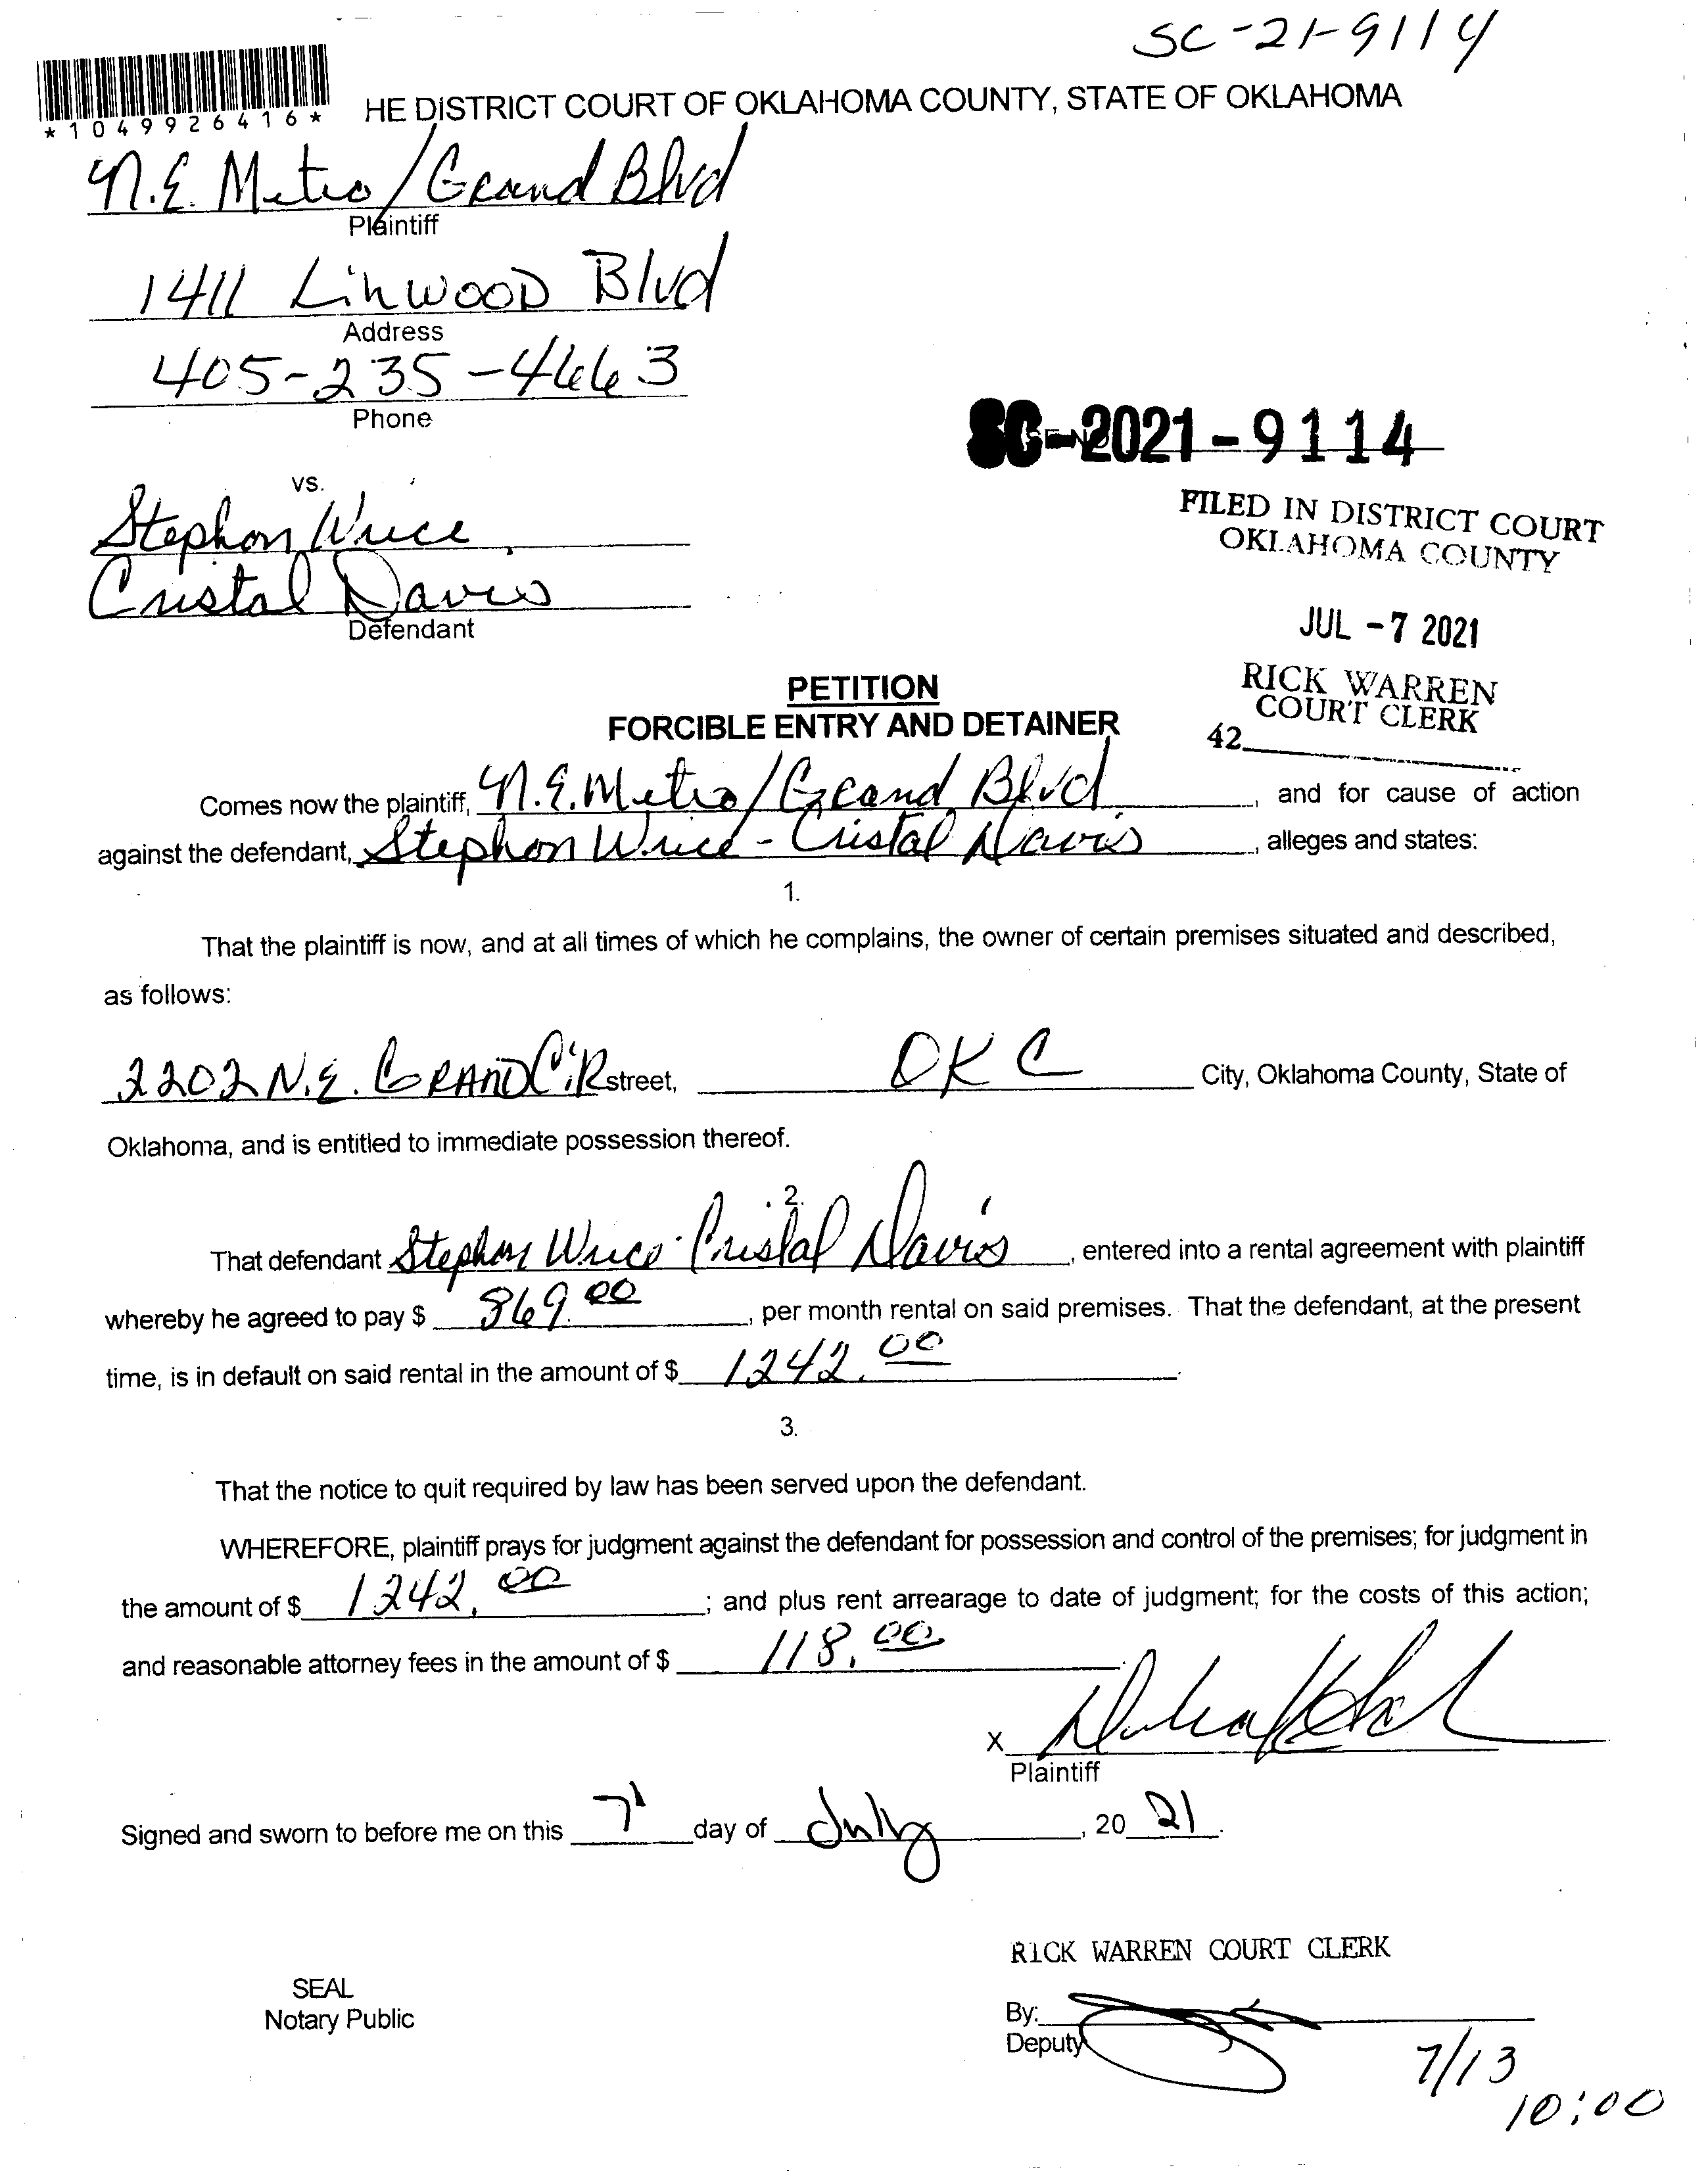 SC-21-9114
*1049926416*
HE DISTRICT COURT OF OKLAHOMA COUNTY, STATE OF OKLAHOMA
N.E. Metro/Grand Blvd
Plaintiff
1411 Linwood Blvd
Address
405-235-4663
Phone
SC-2021-9114
vs.
FILED IN DISTRICT COURT
OKLAHOMA COUNTY
Stephon Wrice
Cristal Davis
Defendant
JUL -7 2021
RICK WARREN
COURT CLERK
42
PETITION
FORCIBLE ENTRY AND DETAINER
Comes now the plaintiff, N.E. Metro/Grand Blvd, and for cause of action
against the defendant, Stephon Wrice - Cristal Davis, alleges and states:
1.
That the plaintiff is now, and at all times of which he complains, the owner of certain premises situated and described,
as follows:
2202 N.E. GRAND CiR street, OKC City, Oklahoma County, State of
Oklahoma, and is entitled to immediate possession thereof.
2.
That defendant Stephon Wrice - Cristal Davis, entered into a rental agreement with plaintiff
whereby he agreed to pay $ 869.00, per month rental on said premises. That the defendant, at the present
time, is in default on said rental in the amount of $ 1242.00.
3.
That the notice to quit required by law has been served upon the defendant.
WHEREFORE, plaintiff prays for judgment against the defendant for possession and control of the premises; for judgment in
the amount of $ 1242.00; and plus rent arrearage to date of judgment; for the costs of this action;
and reasonable attorney fees in the amount of $ 118.00.
X
Plaintiff
Signed and sworn to before me on this 7 day of July, 20 21.
RICK WARREN COURT CLERK
SEAL
Notary Public
By:
Deputy
7/13
10:00